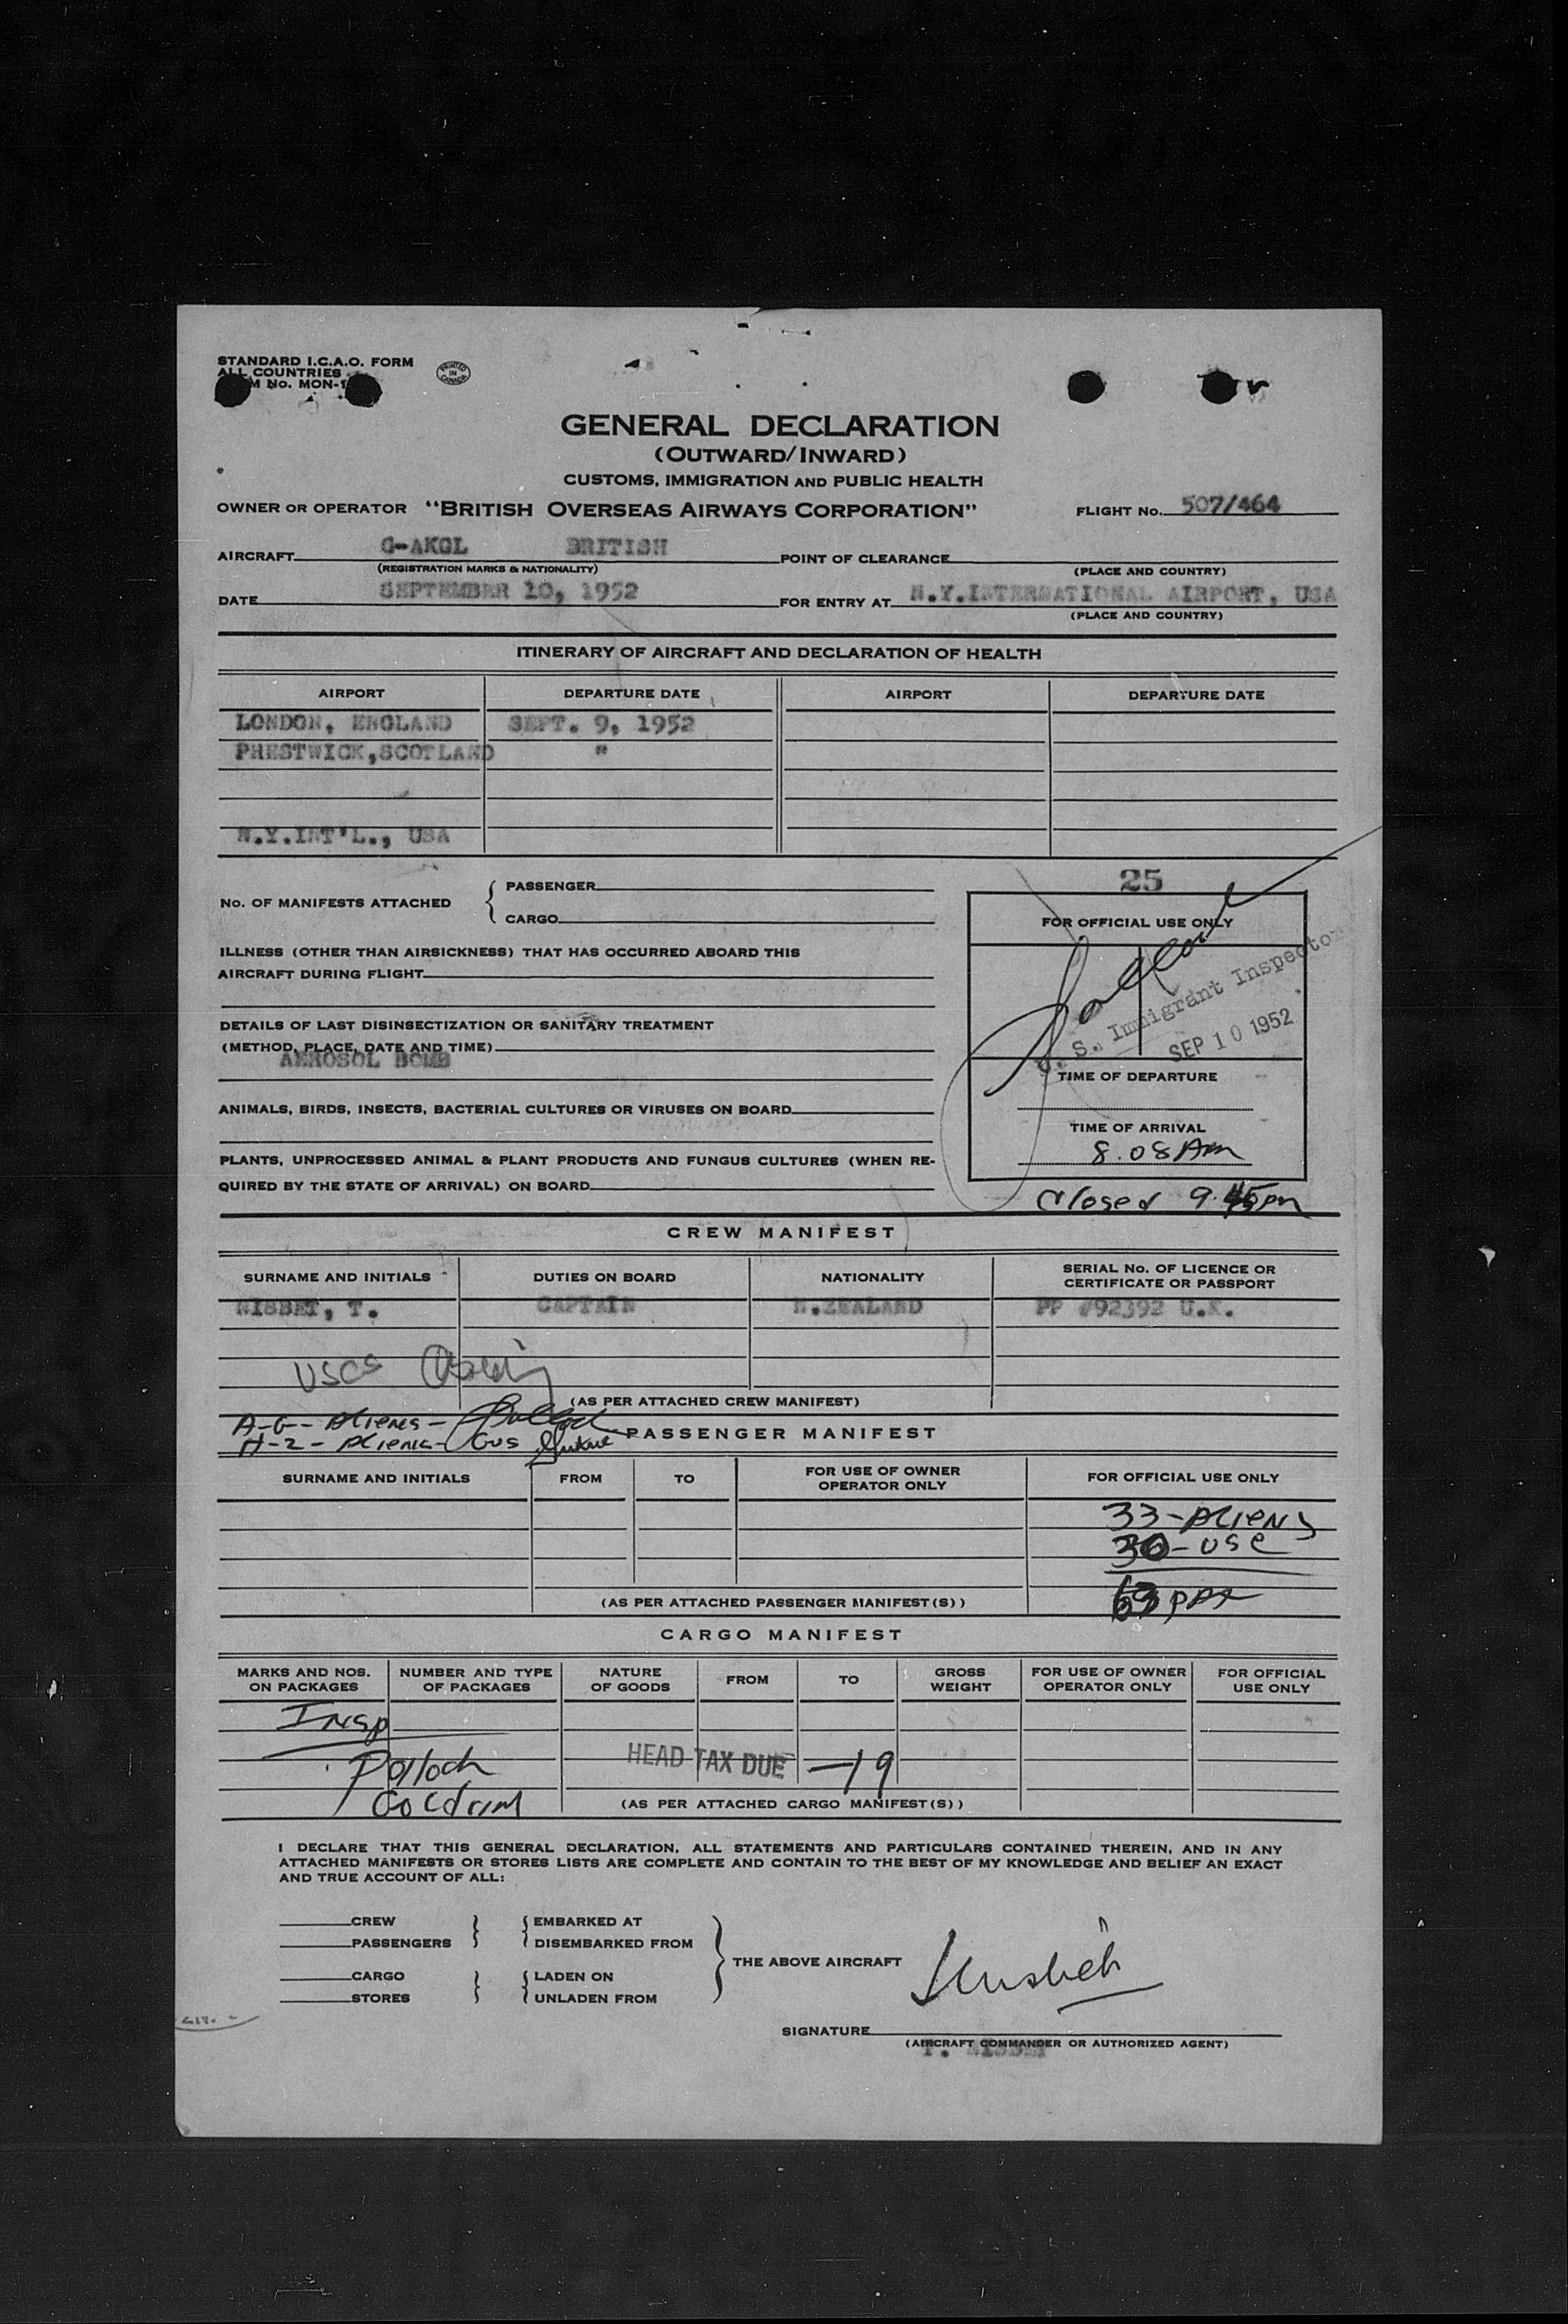 STANDARD I.C.A.O. FORM
ALL COUNTRIES
M No. MON-1
PRINTED IN CANADA
GENERAL DECLARATION
(OUTWARD/INWARD)
CUSTOMS, IMMIGRATION AND PUBLIC HEALTH
OWNER OR OPERATOR "BRITISH OVERSEAS AIRWAYS CORPORATION" FLIGHT No. 507/464
AIRCRAFT G-AKGL BRITISH POINT OF CLEARANCE
(REGISTRATION MARKS & NATIONALITY) (PLACE AND COUNTRY)
DATE SEPTEMBER 10, 1952 FOR ENTRY AT N.Y.INTERNATIONAL AIRPORT, USA
(PLACE AND COUNTRY)
ITINERARY OF AIRCRAFT AND DECLARATION OF HEALTH
AIRPORT DEPARTURE DATE AIRPORT DEPARTURE DATE
LONDON, ENGLAND SEPT. 9, 1952
PRESTWICK,SCOTLAND "
N.Y.INT'L., USA
25
No. OF MANIFESTS ATTACHED { PASSENGER
CARGO
FOR OFFICIAL USE ONLY
ILLNESS (OTHER THAN AIRSICKNESS) THAT HAS OCCURRED ABOARD THIS
AIRCRAFT DURING FLIGHT
S. Immigrant Inspector
SEP 10 1952
DETAILS OF LAST DISINSECTIZATION OR SANITARY TREATMENT
(METHOD, PLACE, DATE AND TIME)
AEROSOL BOMB
TIME OF DEPARTURE
ANIMALS, BIRDS, INSECTS, BACTERIAL CULTURES OR VIRUSES ON BOARD
TIME OF ARRIVAL
8.08 Am
PLANTS, UNPROCESSED ANIMAL & PLANT PRODUCTS AND FUNGUS CULTURES (WHEN RE-
QUIRED BY THE STATE OF ARRIVAL) ON BOARD
Closed 9.45pm
CREW MANIFEST
SURNAME AND INITIALS DUTIES ON BOARD NATIONALITY SERIAL No. OF LICENCE OR CERTIFICATE OR PASSPORT
NISBET, T. CAPTAIN N.ZEALAND PP #92392 U.K.
USCS
(AS PER ATTACHED CREW MANIFEST)
A-G- Aliens-
H-Z- Aliens- Gus
PASSENGER MANIFEST
SURNAME AND INITIALS FROM TO FOR USE OF OWNER OPERATOR ONLY FOR OFFICIAL USE ONLY
33-Aliens
30-USC
63 PAX
(AS PER ATTACHED PASSENGER MANIFEST(S))
CARGO MANIFEST
MARKS AND NOS. ON PACKAGES NUMBER AND TYPE OF PACKAGES NATURE OF GOODS FROM TO GROSS WEIGHT FOR USE OF OWNER OPERATOR ONLY FOR OFFICIAL USE ONLY
Insp
Polloch HEAD TAX DUE -19
(AS PER ATTACHED CARGO MANIFEST(S))
I DECLARE THAT THIS GENERAL DECLARATION, ALL STATEMENTS AND PARTICULARS CONTAINED THEREIN, AND IN ANY
ATTACHED MANIFESTS OR STORES LISTS ARE COMPLETE AND CONTAIN TO THE BEST OF MY KNOWLEDGE AND BELIEF AN EXACT
AND TRUE ACCOUNT OF ALL:
CREW } { EMBARKED AT
PASSENGERS DISEMBARKED FROM
} THE ABOVE AIRCRAFT
CARGO } { LADEN ON
STORES UNLADEN FROM
SIGNATURE
(AIRCRAFT COMMANDER OR AUTHORIZED AGENT)
T. NISBET